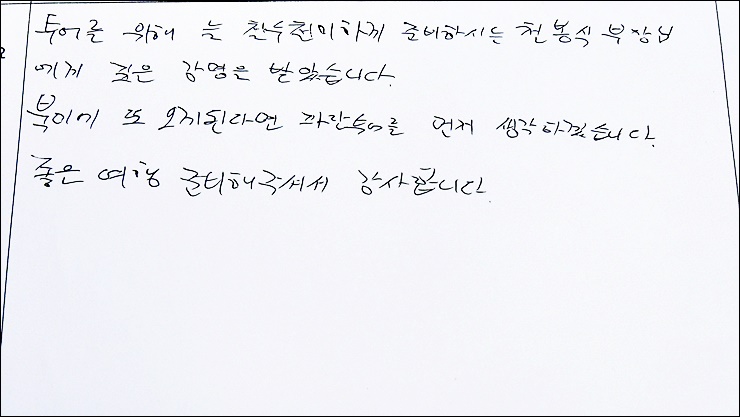 투어를 위해 늘 철두철미하게 준비하시는 천봉식 부장님
에게 깊은 감명을 받았습니다.
북미에 또 오게된다면 파란투어를 먼저 생각하겠습니다.
좋은 여행 리드해주셔서 감사합니다